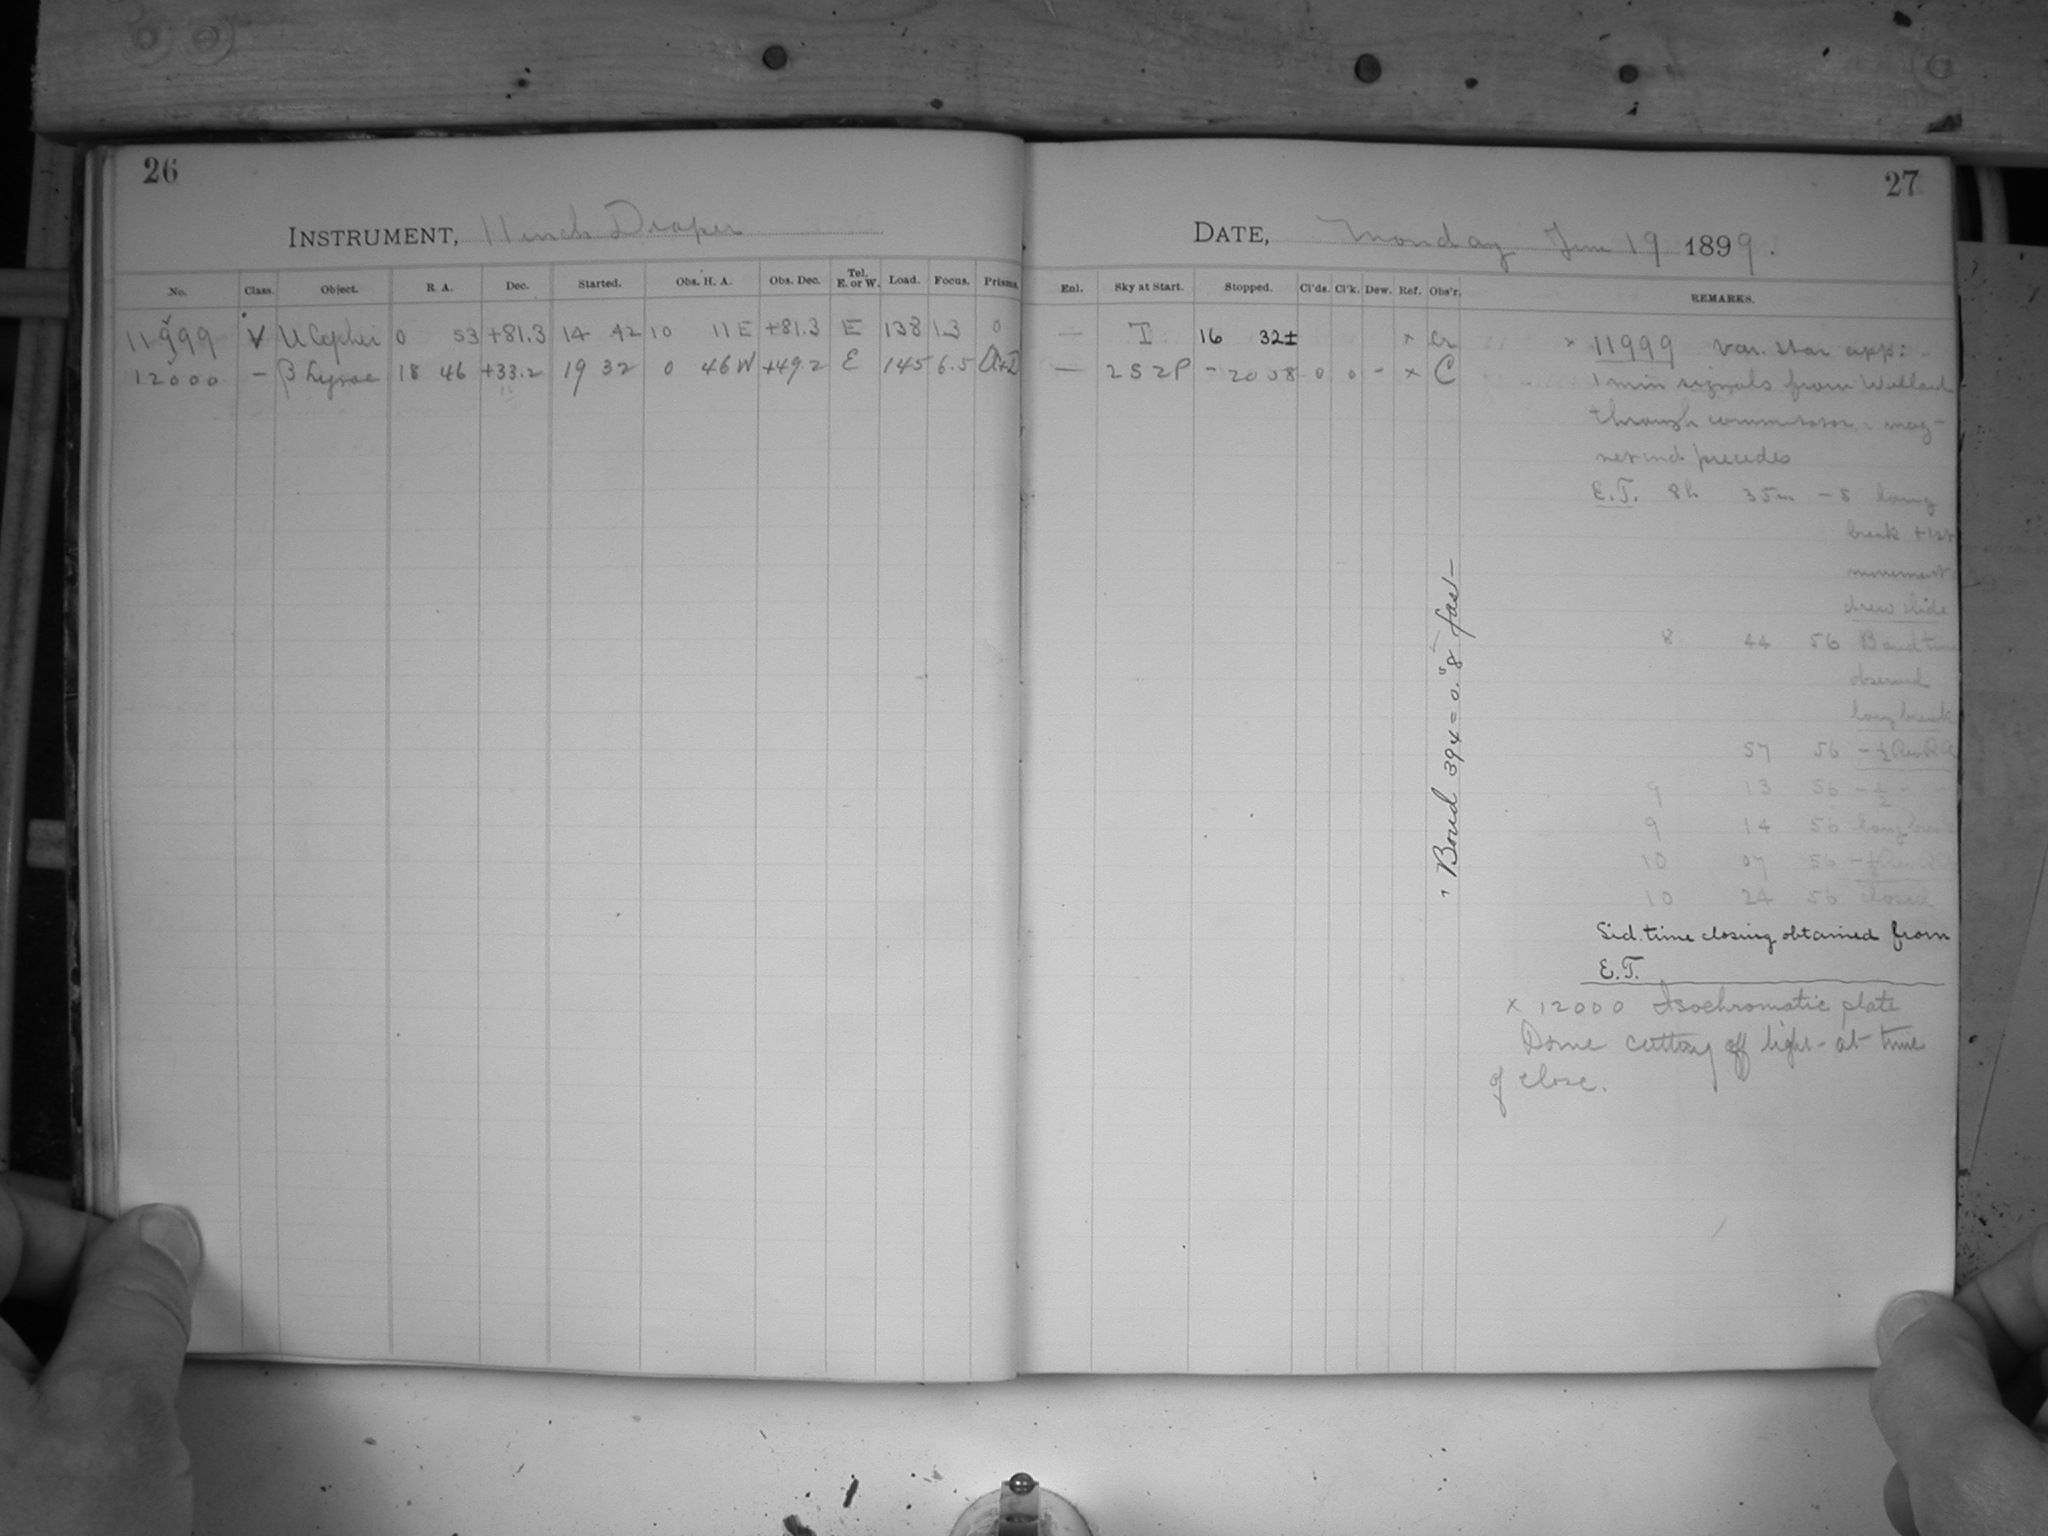 26
INSTRUMENT, 11 inch Draper
No. Class. Object. R. A. Dec. Started. Obs. H. A. Obs. Dec. Tel. E. or W. Load. Focus. Prisms.
11999 V U Cephei 0 53 +81.3 14 42 10 11 E +81.3 E 138 13 0
12000 – β Lyrae 18 46 +33.2 19 32 0 46 W +49.2 E 145 6.5
27
DATE, Monday Jun 19 1899.
Enl. Sky at Start. Stopped. Cl'ds. Cl'k. Dew. Ref. Obs'r. REMARKS.
— I 16 32± x
— 2S2P – 20 58 0 0 – x C
x 11999 var. star app:
1 min signals from Willard
through commutator. mag-
net ind precedes
E.T. 8h 35m –s long
break + 1st
movement
drew slide
8 44 56 Bond time
observed
long break
57 56 – ½ Rev R A
9 13 56 – ½ " "
9 14 56 long break
10 07 56
10 24 56 closed
Sid. time closing obtained from
E.T.
x 12000 Isochromatic plate
Dome cutting off light at time
of close.
Bond 394 = 0.s8 fast –